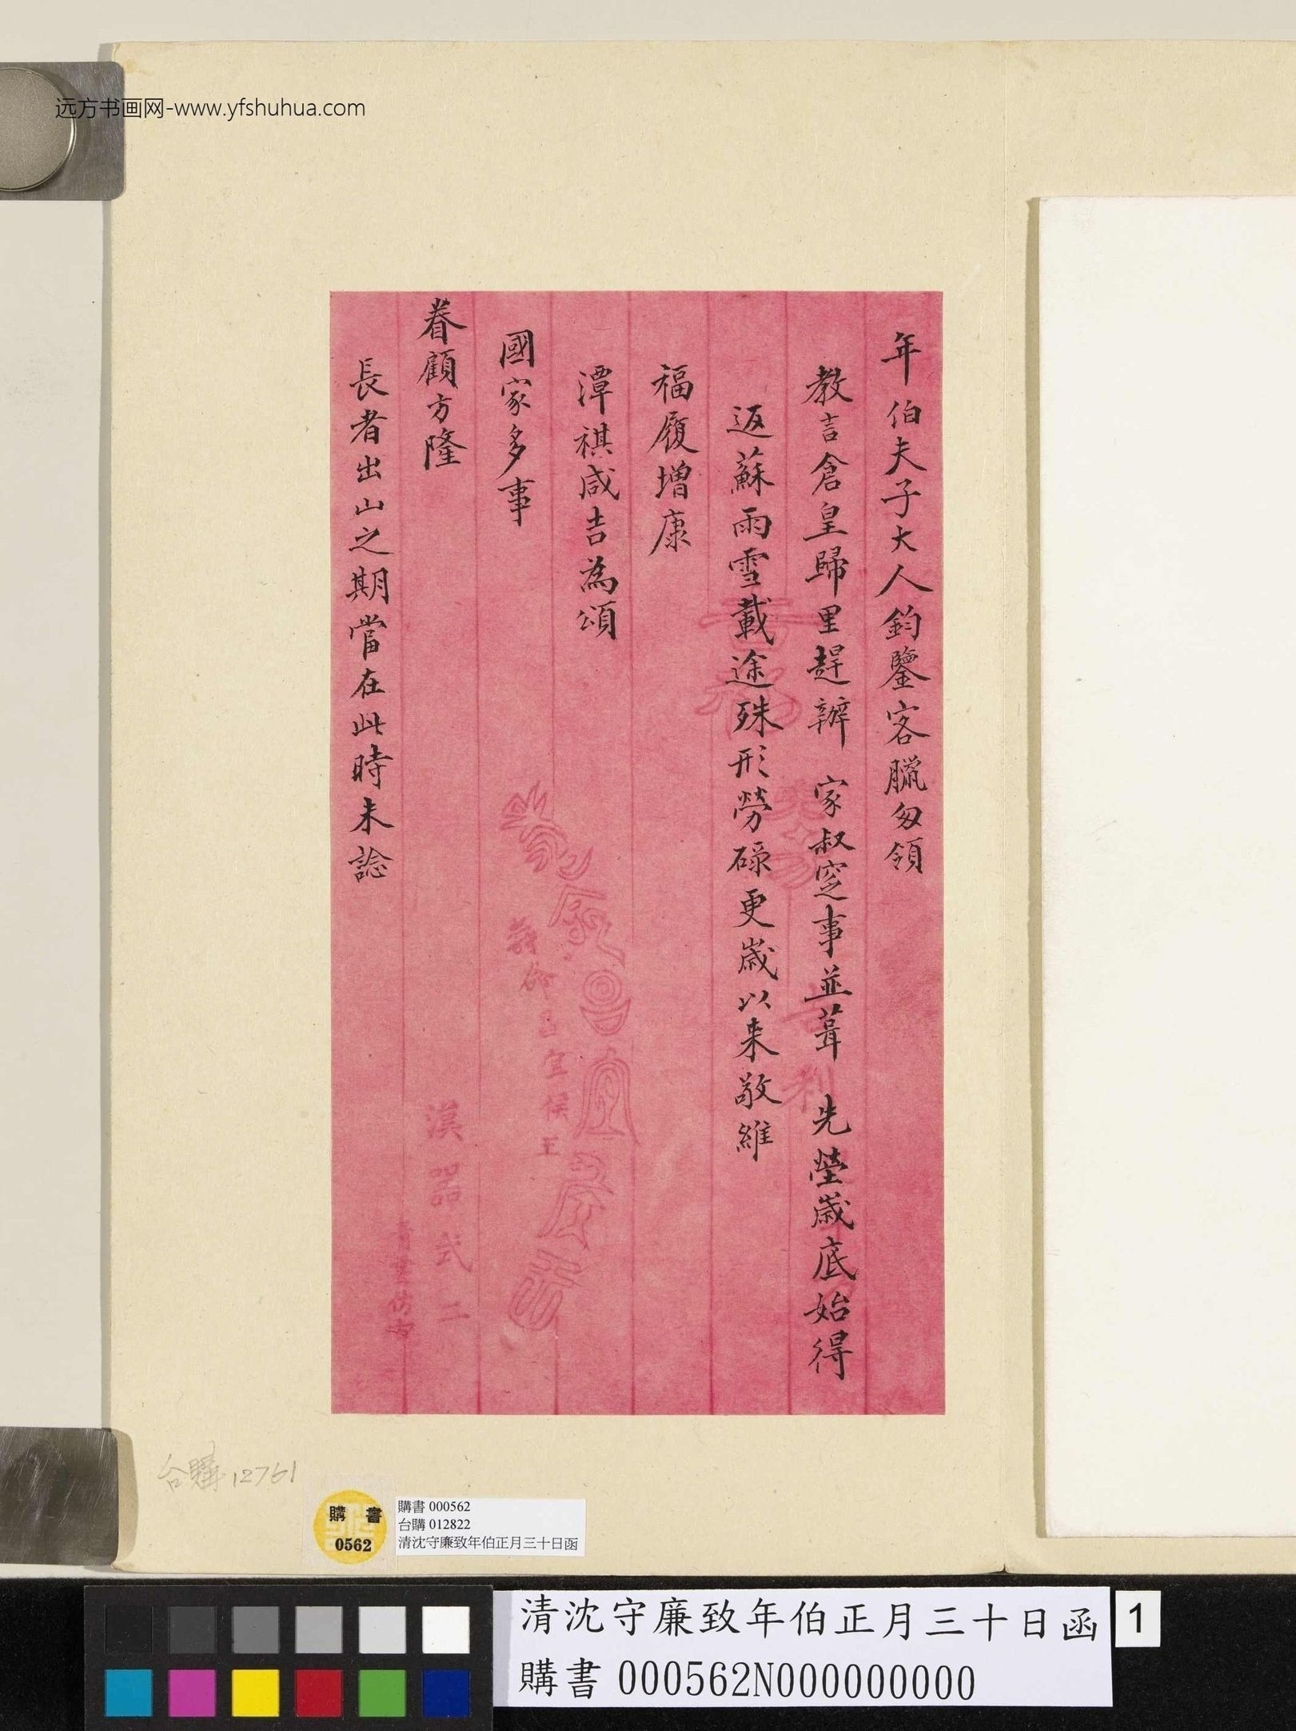 远方书画网-www.yfshuhua.com
年伯夫子大人鈞鑒客臘匆領
教言倉皇歸里趕辦 家叔窆事並葺 先塋歲底始得
返蘇雨雪載途殊形勞碌更歲以來敬維
福履增康
潭祺咸吉為頌
國家多事
眷顧方隆
長者出山之期當在此時未諗
宜侯王
漢器式二
台購12761
購書
0562
購書 000562
台購 012822
清沈守廉致年伯正月三十日函
清沈守廉致年伯正月三十日函
購書 000562N000000000
1